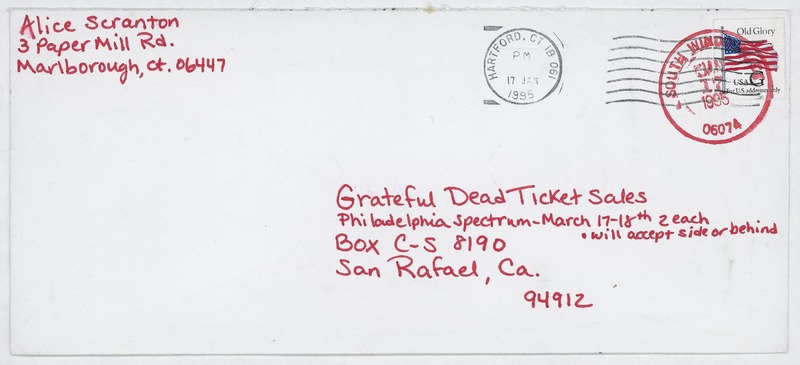 Alice Scranton
3 Paper Mill Rd.
Marlborough, Ct. 06447
HARTFORD, CT 061
PM
17 JAN
1995
Old Glory
USA G
For U.S. addresses only
SOUTH WIND
JAN
17
1995
06074
Grateful Dead Ticket Sales
Philadelphia Spectrum - March 17-18th 2 each
• will accept side or behind
Box C-S 8190
San Rafael, Ca.
94912